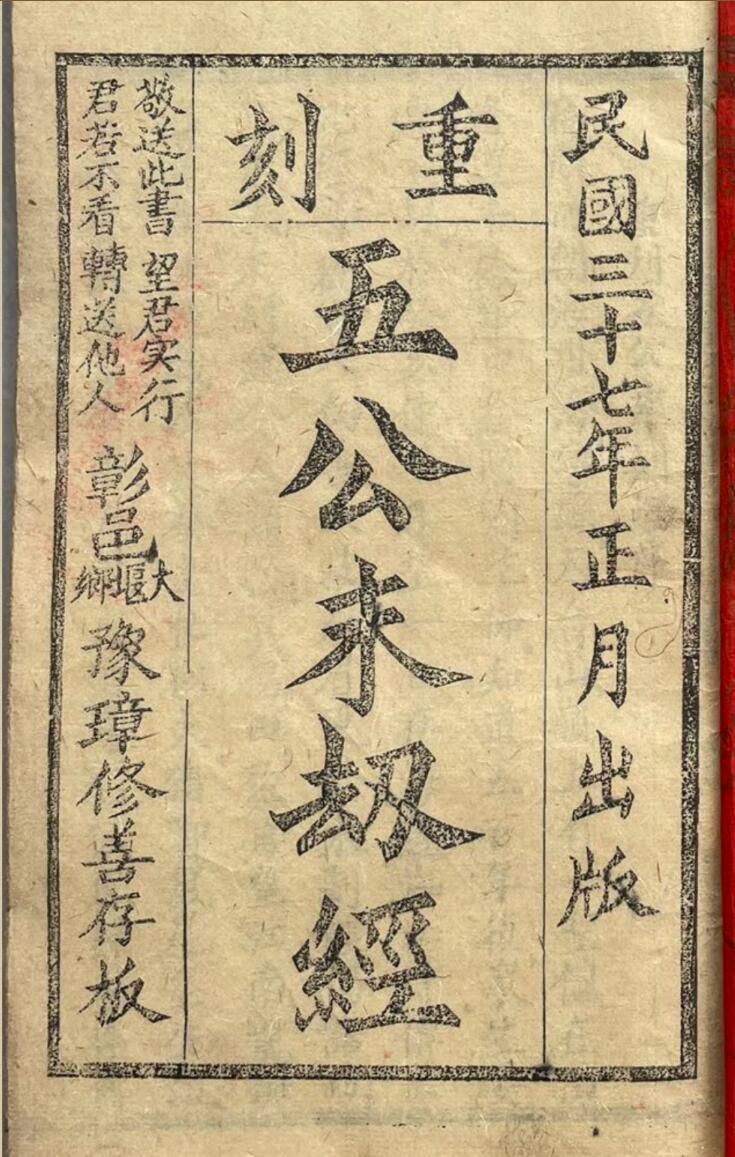 民國三十七年正月出版
重刻
五公末刼經
敬送此書 望君实行
君若不看 轉送他人
彰邑
大堰鄉
豫璋修善存板